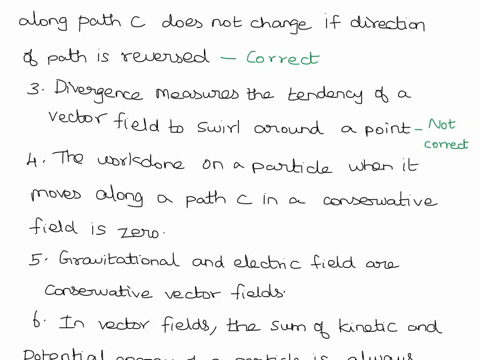 along path C does not change if direction
of path is reversed – Correct
3. Divergence measures the tendency of a
vector field to swirl around a point – Not correct
4. The workdone on a particle when it
moves along a path C in a conservative
field is zero.
5. Gravitational and electric field are
conservative vector fields.
6. In vector fields, the sum of kinetic and
Potential energy of a particle is always